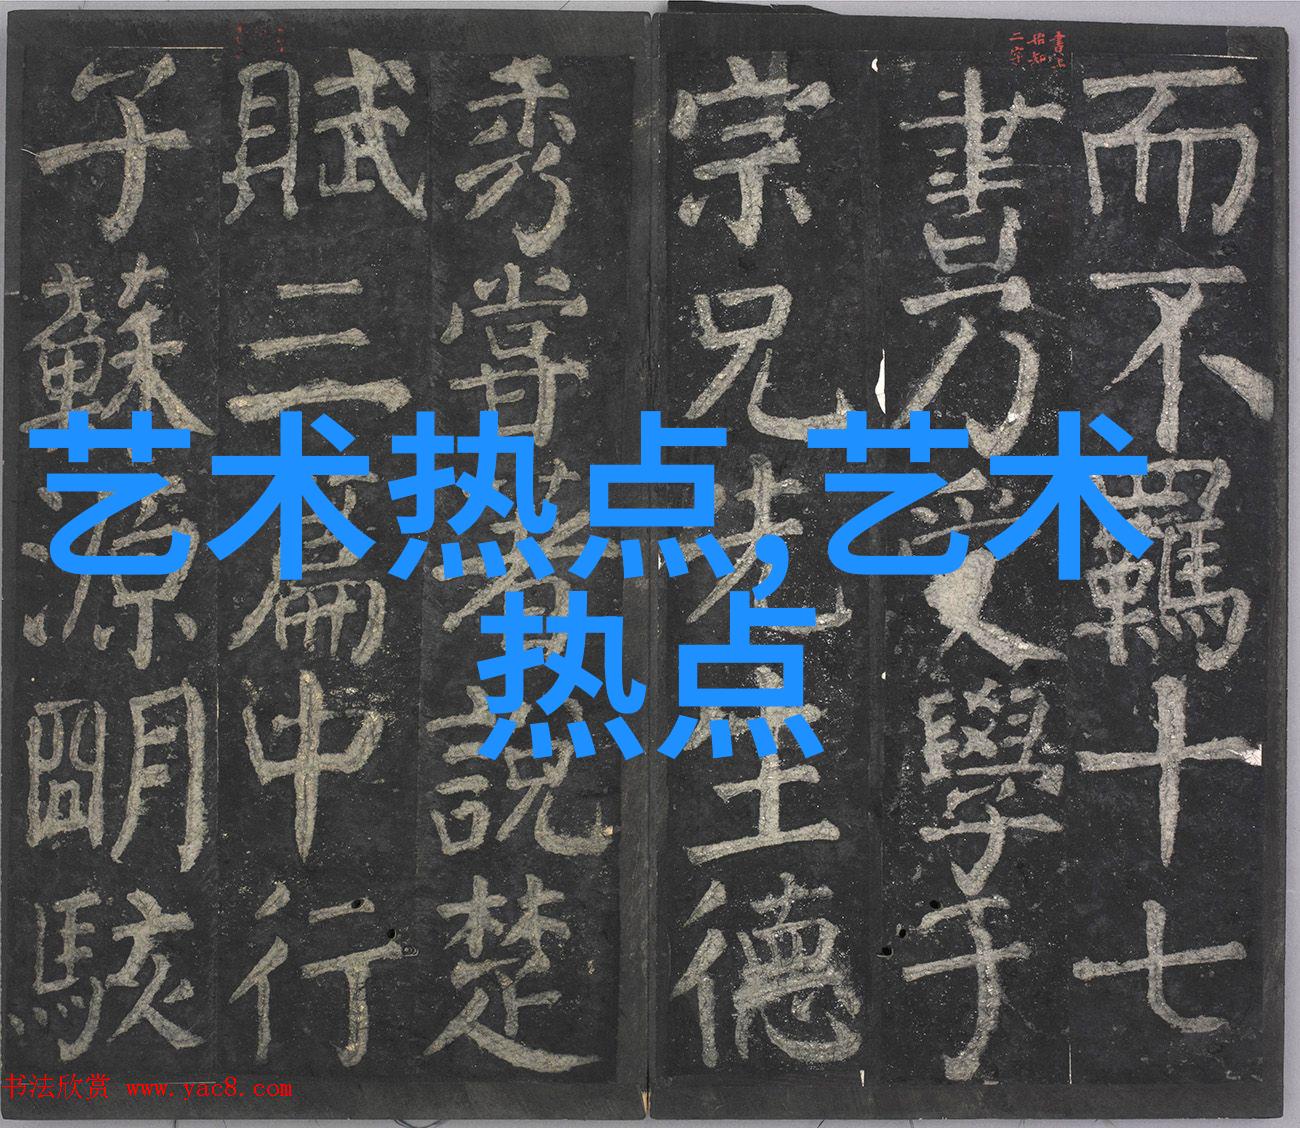 書上
皆如
二字
而不羈十七
書乃受學于
宗兄先生德
秀嘗著說楚
賦三篇中行
子蘇源明駭
艺术热点,艺术
热点
书法欣赏 www.yac8.com